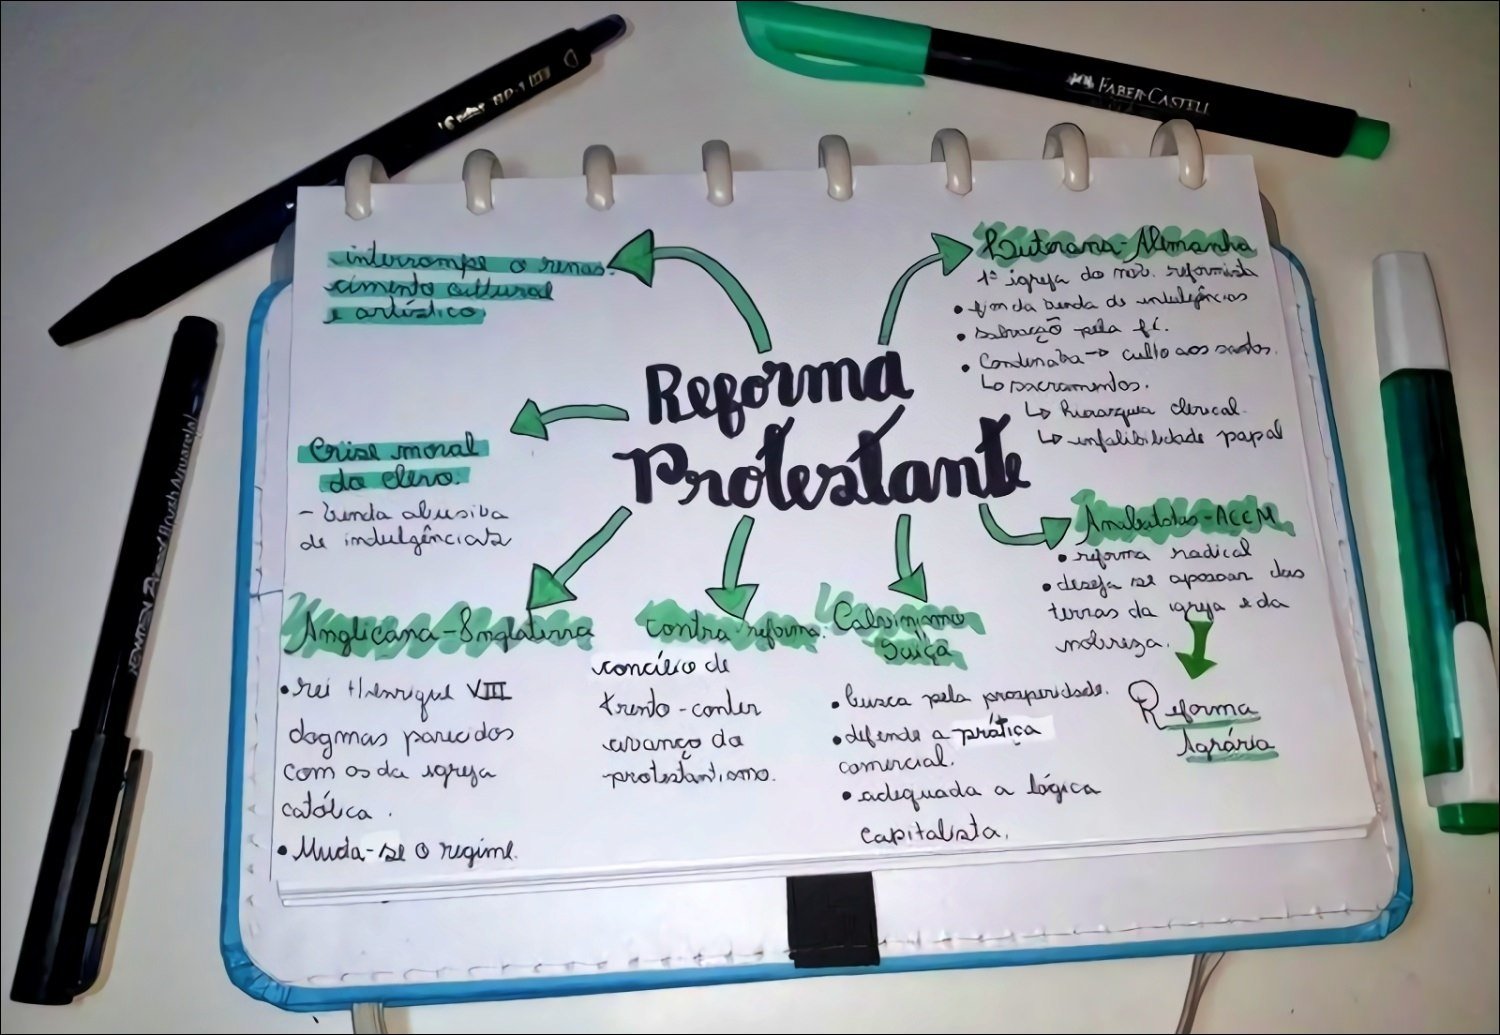 FABER-CASTELL
Reforma
Protestante
interrompe o renas-
cimento cultural
e artístico.
Crise moral
do clero.
- venda abusiva
de indulgências
Luterana - Alemanha
1ª igreja do mov. reformista
• fim da venda de indulgências
• salvação pela fé.
• Condenava → culto aos santos.
↳ sacramentos.
↳ hierarquia clerical.
↳ infalibilidade papal
Anabatistas - ACCM
• reforma radical
• deseja se apossar das
terras da igreja e da
nobreza.
Reforma
Agrária
Anglicana - Inglaterra
• rei Henrique VIII
dogmas parecidos
com os da igreja
católica.
• Muda-se o regime.
Contra-reforma.
concílio de
trento - conter
avanço do
protestantismo.
Calvinismo
Suíça
• busca pela prosperidade.
• defende a prática
comercial.
• adequada a lógica
capitalista.